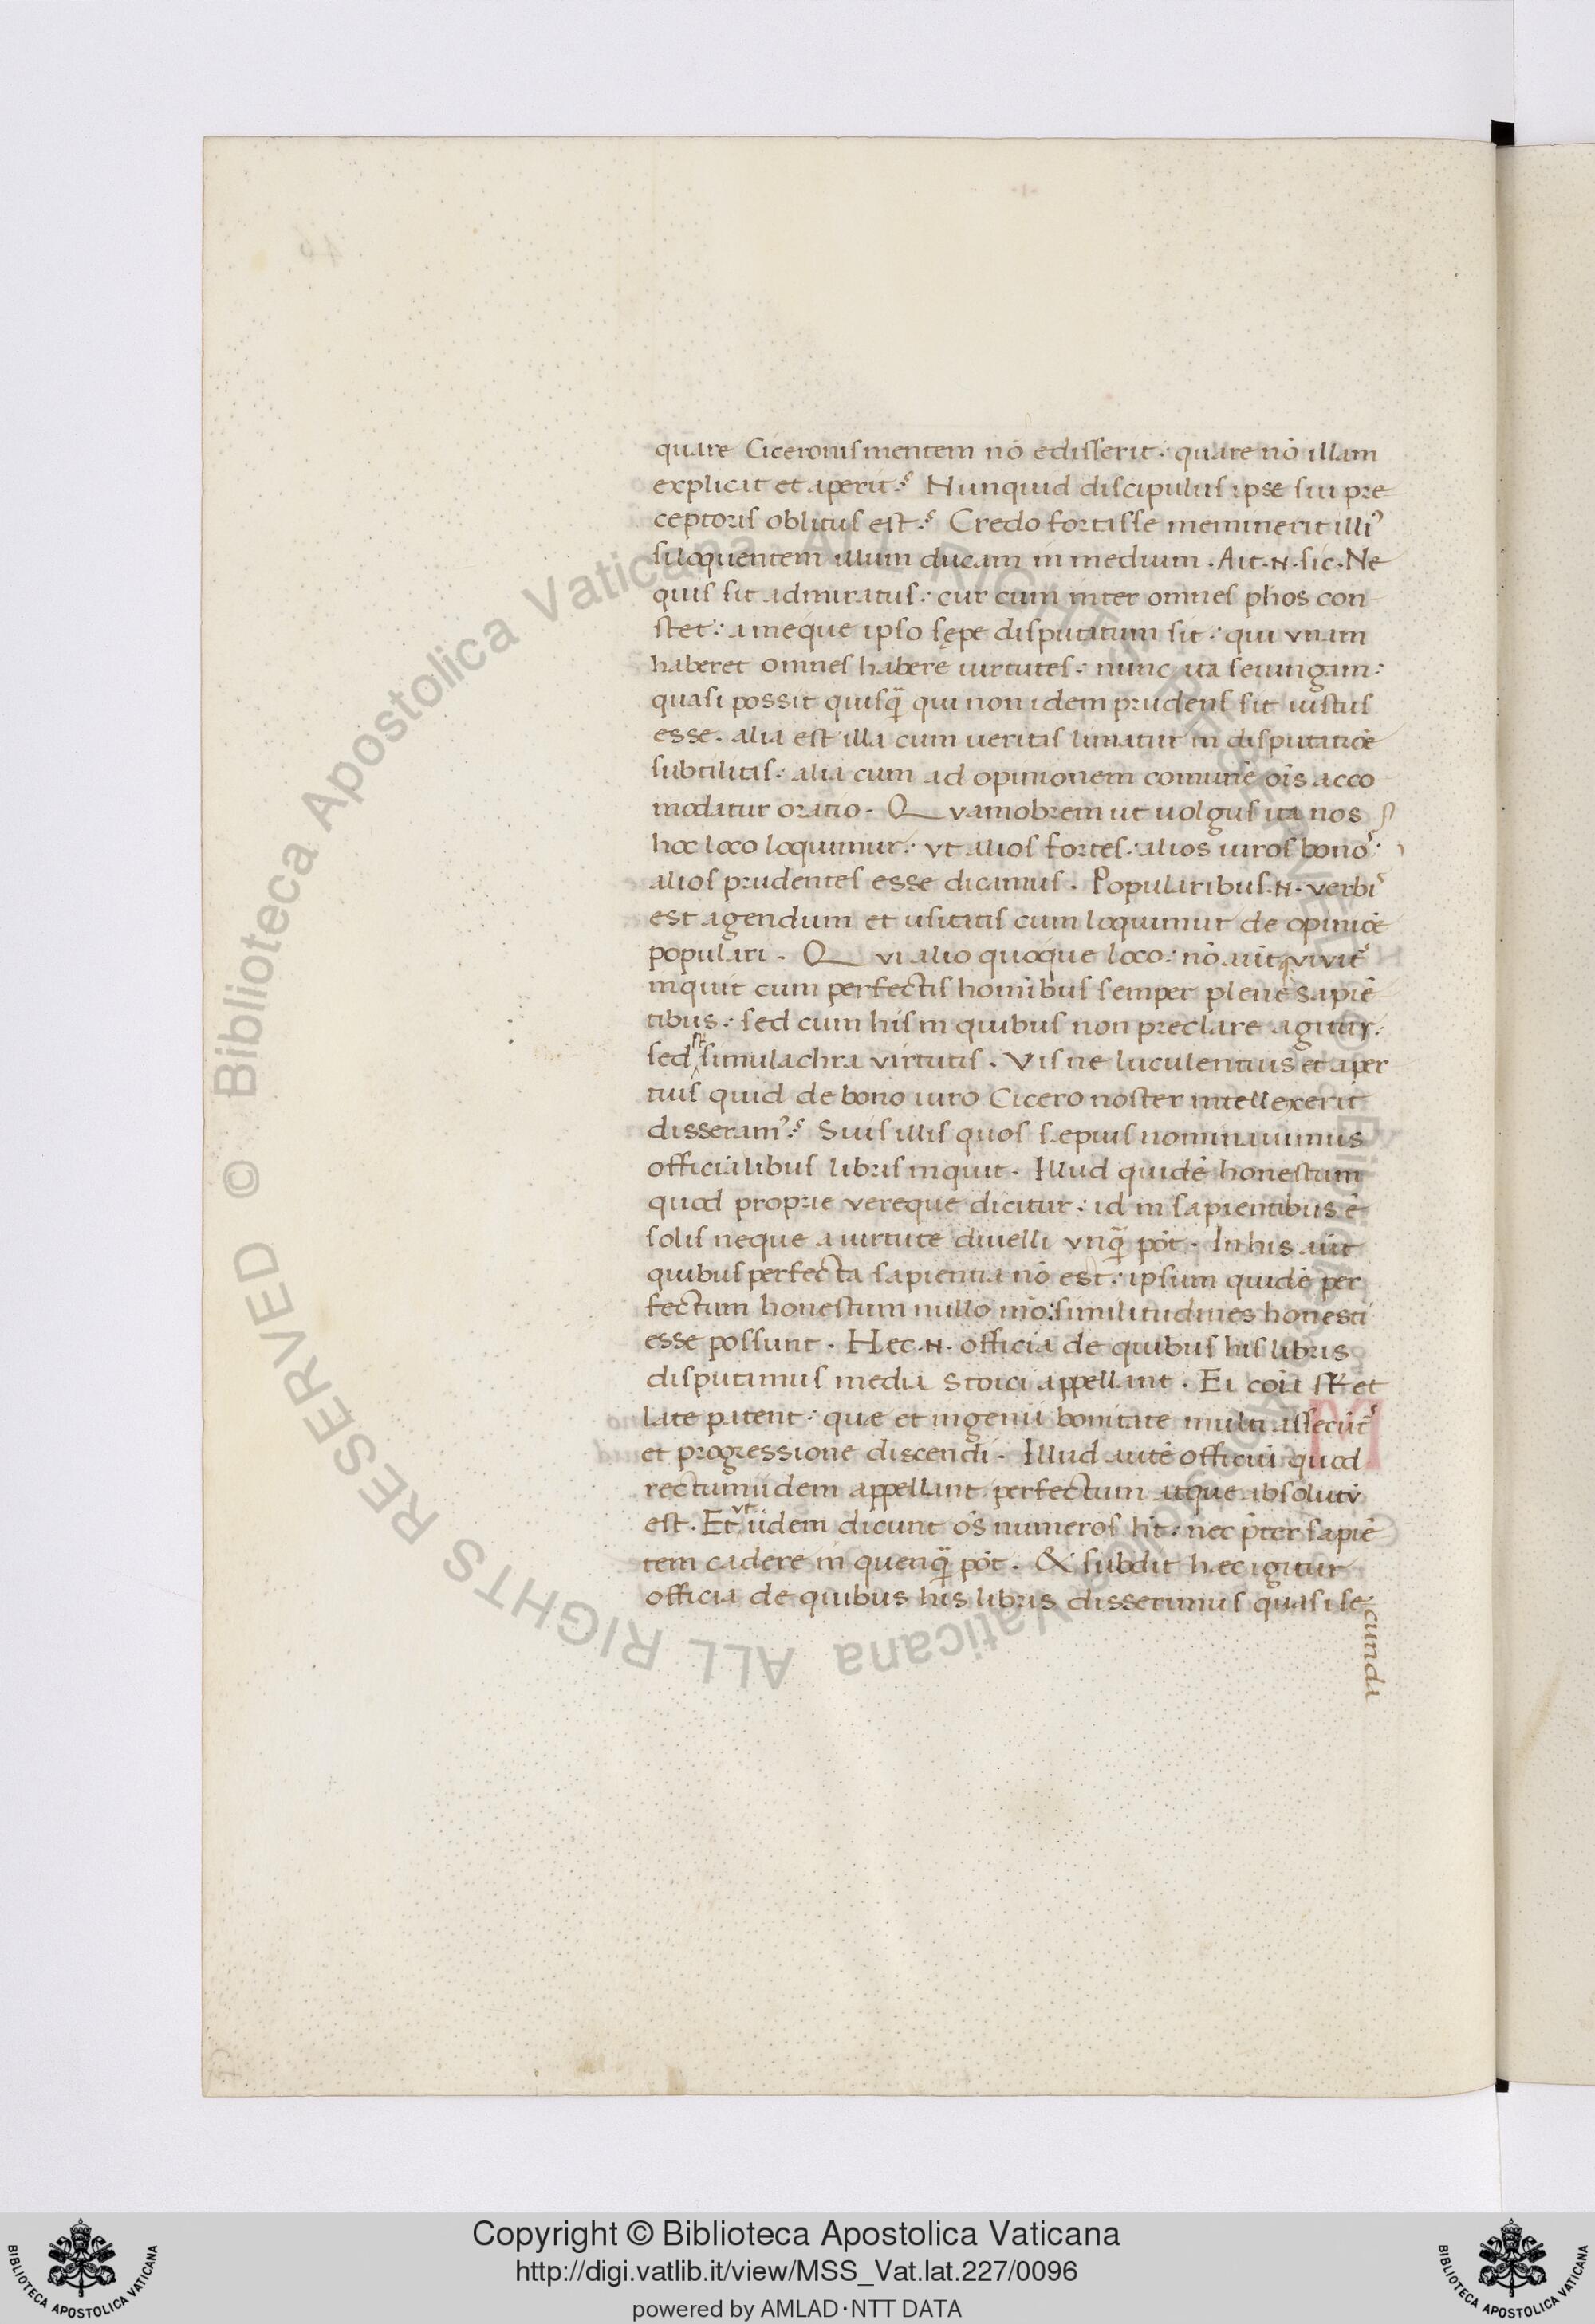 quare Ciceronis mentem nō edisserit· quare nō illam
explicat et aperit? Nunquid discipulus ipse sui pre
ceptoris oblitus est? Credo fortasse meminerit illi᾽
si loquentem illum ducam in medium. Ait .N. sic. Ne
quis sit admiratus: cur cum inter omnes phos con
stet: a meque ipso sępe disputatum sit: qui vnam
haberet omnes habere uirtutes: nunc ita seiungam:
quasi possit quisq̄ qui non idem prudens sit iustus
esse. alia est illa cum ueritas limatur in disputatiōe
subtilitas: alia cum ad opinionem comunē oīs acco
modatur oratio. Quamobrem ut uolgus ita nos
hoc loco loquimur: vt alios fortes: alios uiros bono᾽:
alios prudentes esse dicamus. Popularibus .N. verbi᾽
est agendum et usitatis cum loquimur de opiniōe
populari. Qui alio quoque loco: nō aūt vivit᾽
inquit cum perfectis hominibus semper plene sapiē
tibus: sed cum his in quibus non preclare agitur:
sed st̄ simulachra virtutis. Vis ne luculentius et aper
tius quid de bono uiro Cicero noster intellexerit
disseram᾽? Suis illis quos sepius nominauimus
officialibus libris inquit. Illud quidē honestum
quod proprie vereque dicitur: id in sapientibus ē
solis neque a uirtute diuelli vnq̄ pōt. In his aūt
quibus perfecta sapientia nō est: ipsum quidē per
fectum honestum nullo mō: similitudines honesti
esse possunt. Hec .N. officia de quibus his libris
disputamus media Stoici appellant. Ea cōia st̄ et
late patent: quae et ingenii bonitate multi assecūt᾽
et progressione discendi. Illud autē officiū quod
rectum iidem appellant perfectum atque absolutū
est. Et vt iidem dicunt oēs numeros hēt: nec p̄ter sapiē
tem cadere in quenq̄ pōt. & subdit hec igitur
officia de quibus his libris disserimus quasi se
cunda
Copyright © Biblioteca Apostolica Vaticana
http://digi.vatlib.it/view/MSS_Vat.lat.227/0096
powered by AMLAD·NTT DATA